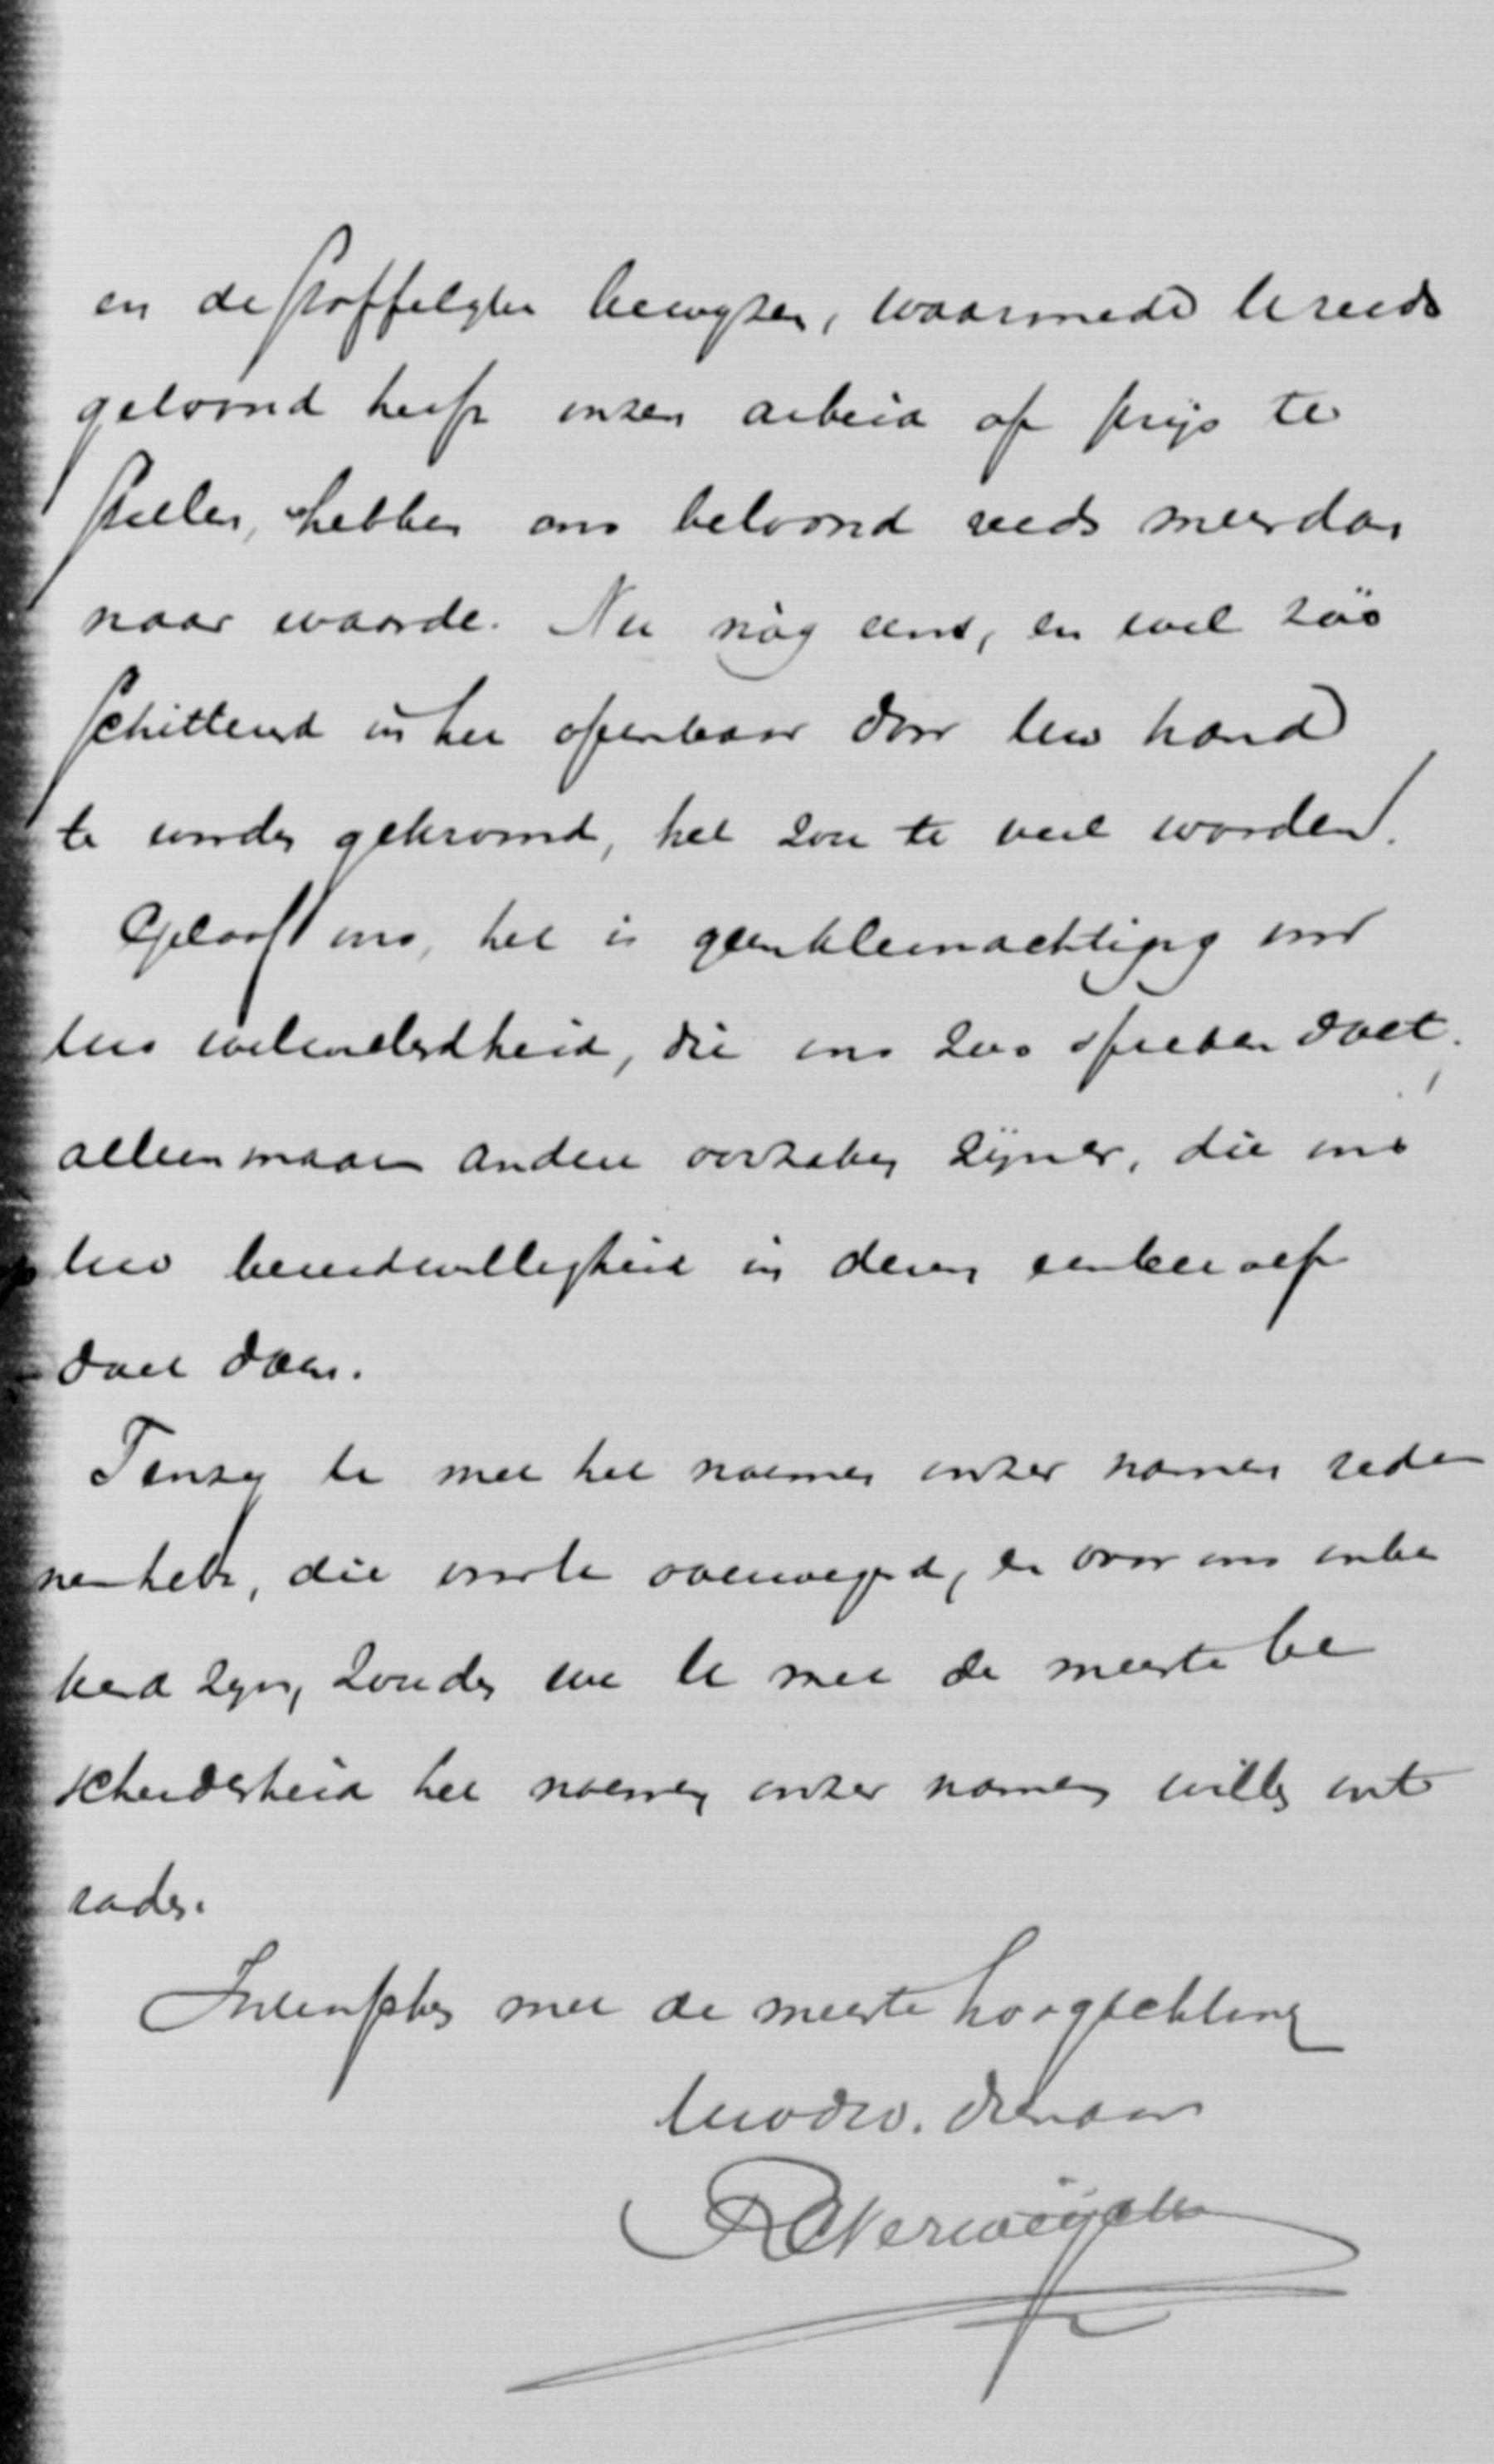 en de stoffelyke bewyzen, waarmede U reeds
getoond heeft onzen arbeid op prijs te
stellen, hebben ons beloond reeds meer dan
naar waarde. Nu nòg eens, en wel zóó
schittend in het openbaar door Uw hand
te worden gekroond, het zou te veel worden!
Gelooft ons, het is geen kleinachting voor
Uwe welwillendheid, die ons zoo spreken doet,
alleen maar andere oorzaken zyn er, die ons
Uw bereidwilligheid in dezen een beroep
doet doen.
Tenzy U met het noemen onzer namen rede
nen hebt, die overwegend, en voor ons onbe
kend zyn, zouden we U met de meeste be
scheidenheid het noemen onzer namen willen ont
raden.
Intusschen met de meeste hoogachting
Uwdw. dienaar